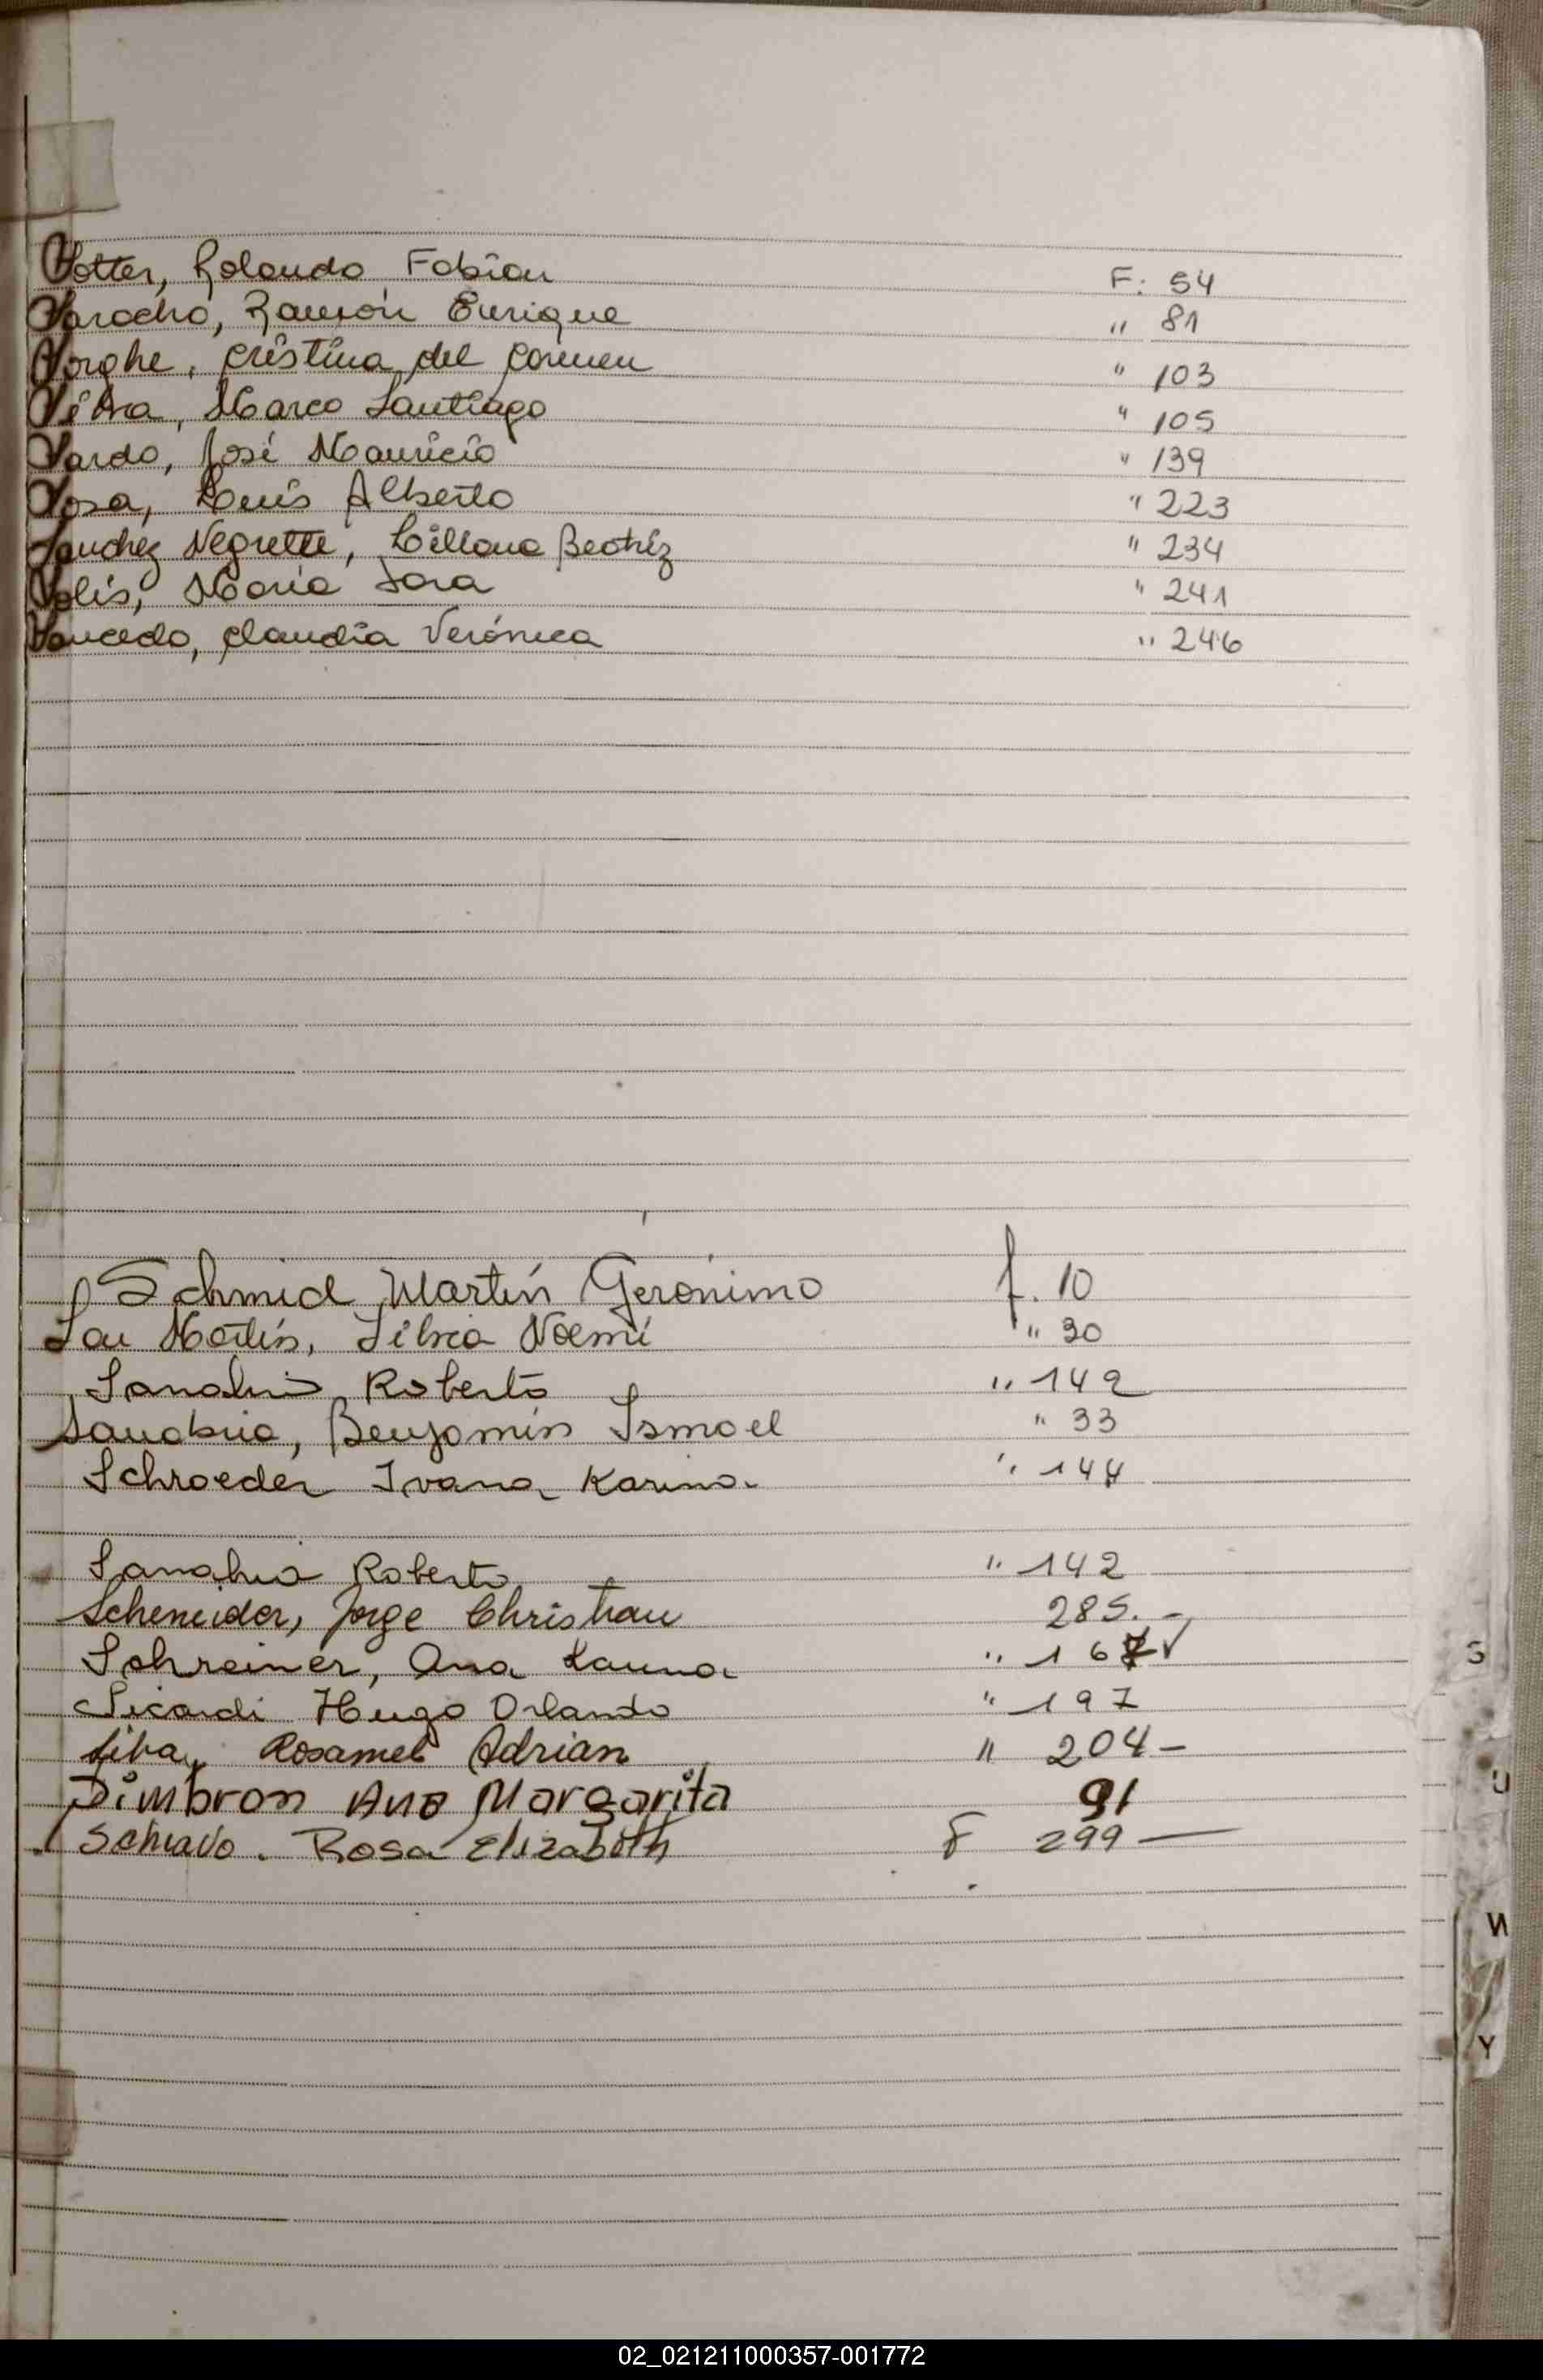 Sotter, Rolando Fabian F: 54
Saracho, Ramón Enrique " 81
Sorghe, Cristina del Carmen " 103
Silva, Marco Santiago " 105
Sardo, José Mauricio " 139
Sosa, Luis Alberto " 223
Sanchez Negrette, Liliana Beatriz " 234
Solis, María Sara " 241
Saucedo, Claudia Verónica " 246
Schmid Martín Gerónimo f. 10
San Martín, Silvia Noemí " 30
Sanabria Roberto " 142
Sanabria, Benjamín Ismael " 33
Schroeder Ivana Karina " 144
Sanabria Roberto " 142
Scheneider, Jorge Christian 285.-
Schreiner, Ana Karina " 167
S
Sicardi Hugo Orlando " 197
Silva, Rosamel Adrian " 204-
U
Simbron Ana Margarita 91
Schiavo. Rosa Elizabeth F 299
W
Y
02_021211000357-001772